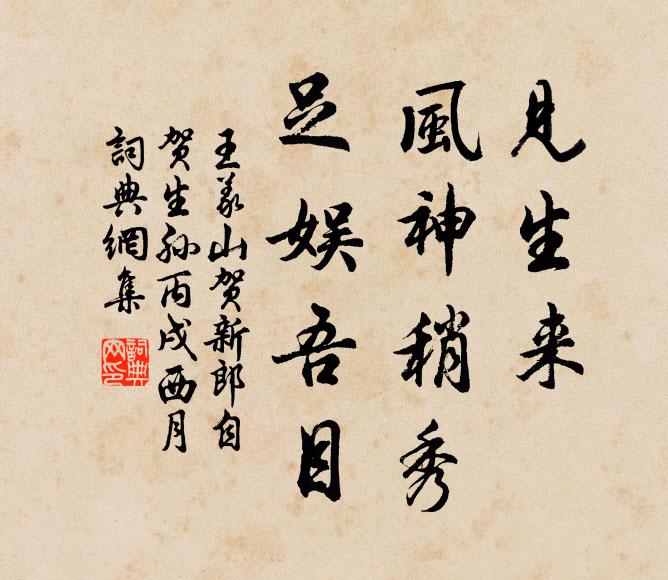 見生来
風神稍秀
足娱吾目
王义山賀新郎自
贺生孙丙戌西月
詞典網集
詞典
网印